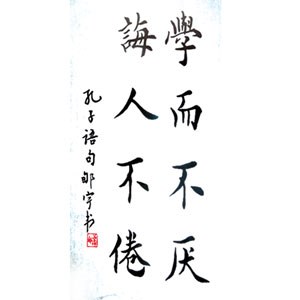 學而不厌
誨人不倦
孔子语句邹宇书